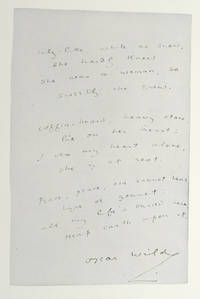 Lily-like, white as snow,
She hardly knew
She was a woman, so
Sweetly she grew.
Coffin-board, heavy stone
Lie on her breast;
I vex my heart alone,
She is at rest.
Peace, peace, she cannot hear
Lyre or sonnet;
All my life's buried here
Heap earth upon it.
Oscar Wilde